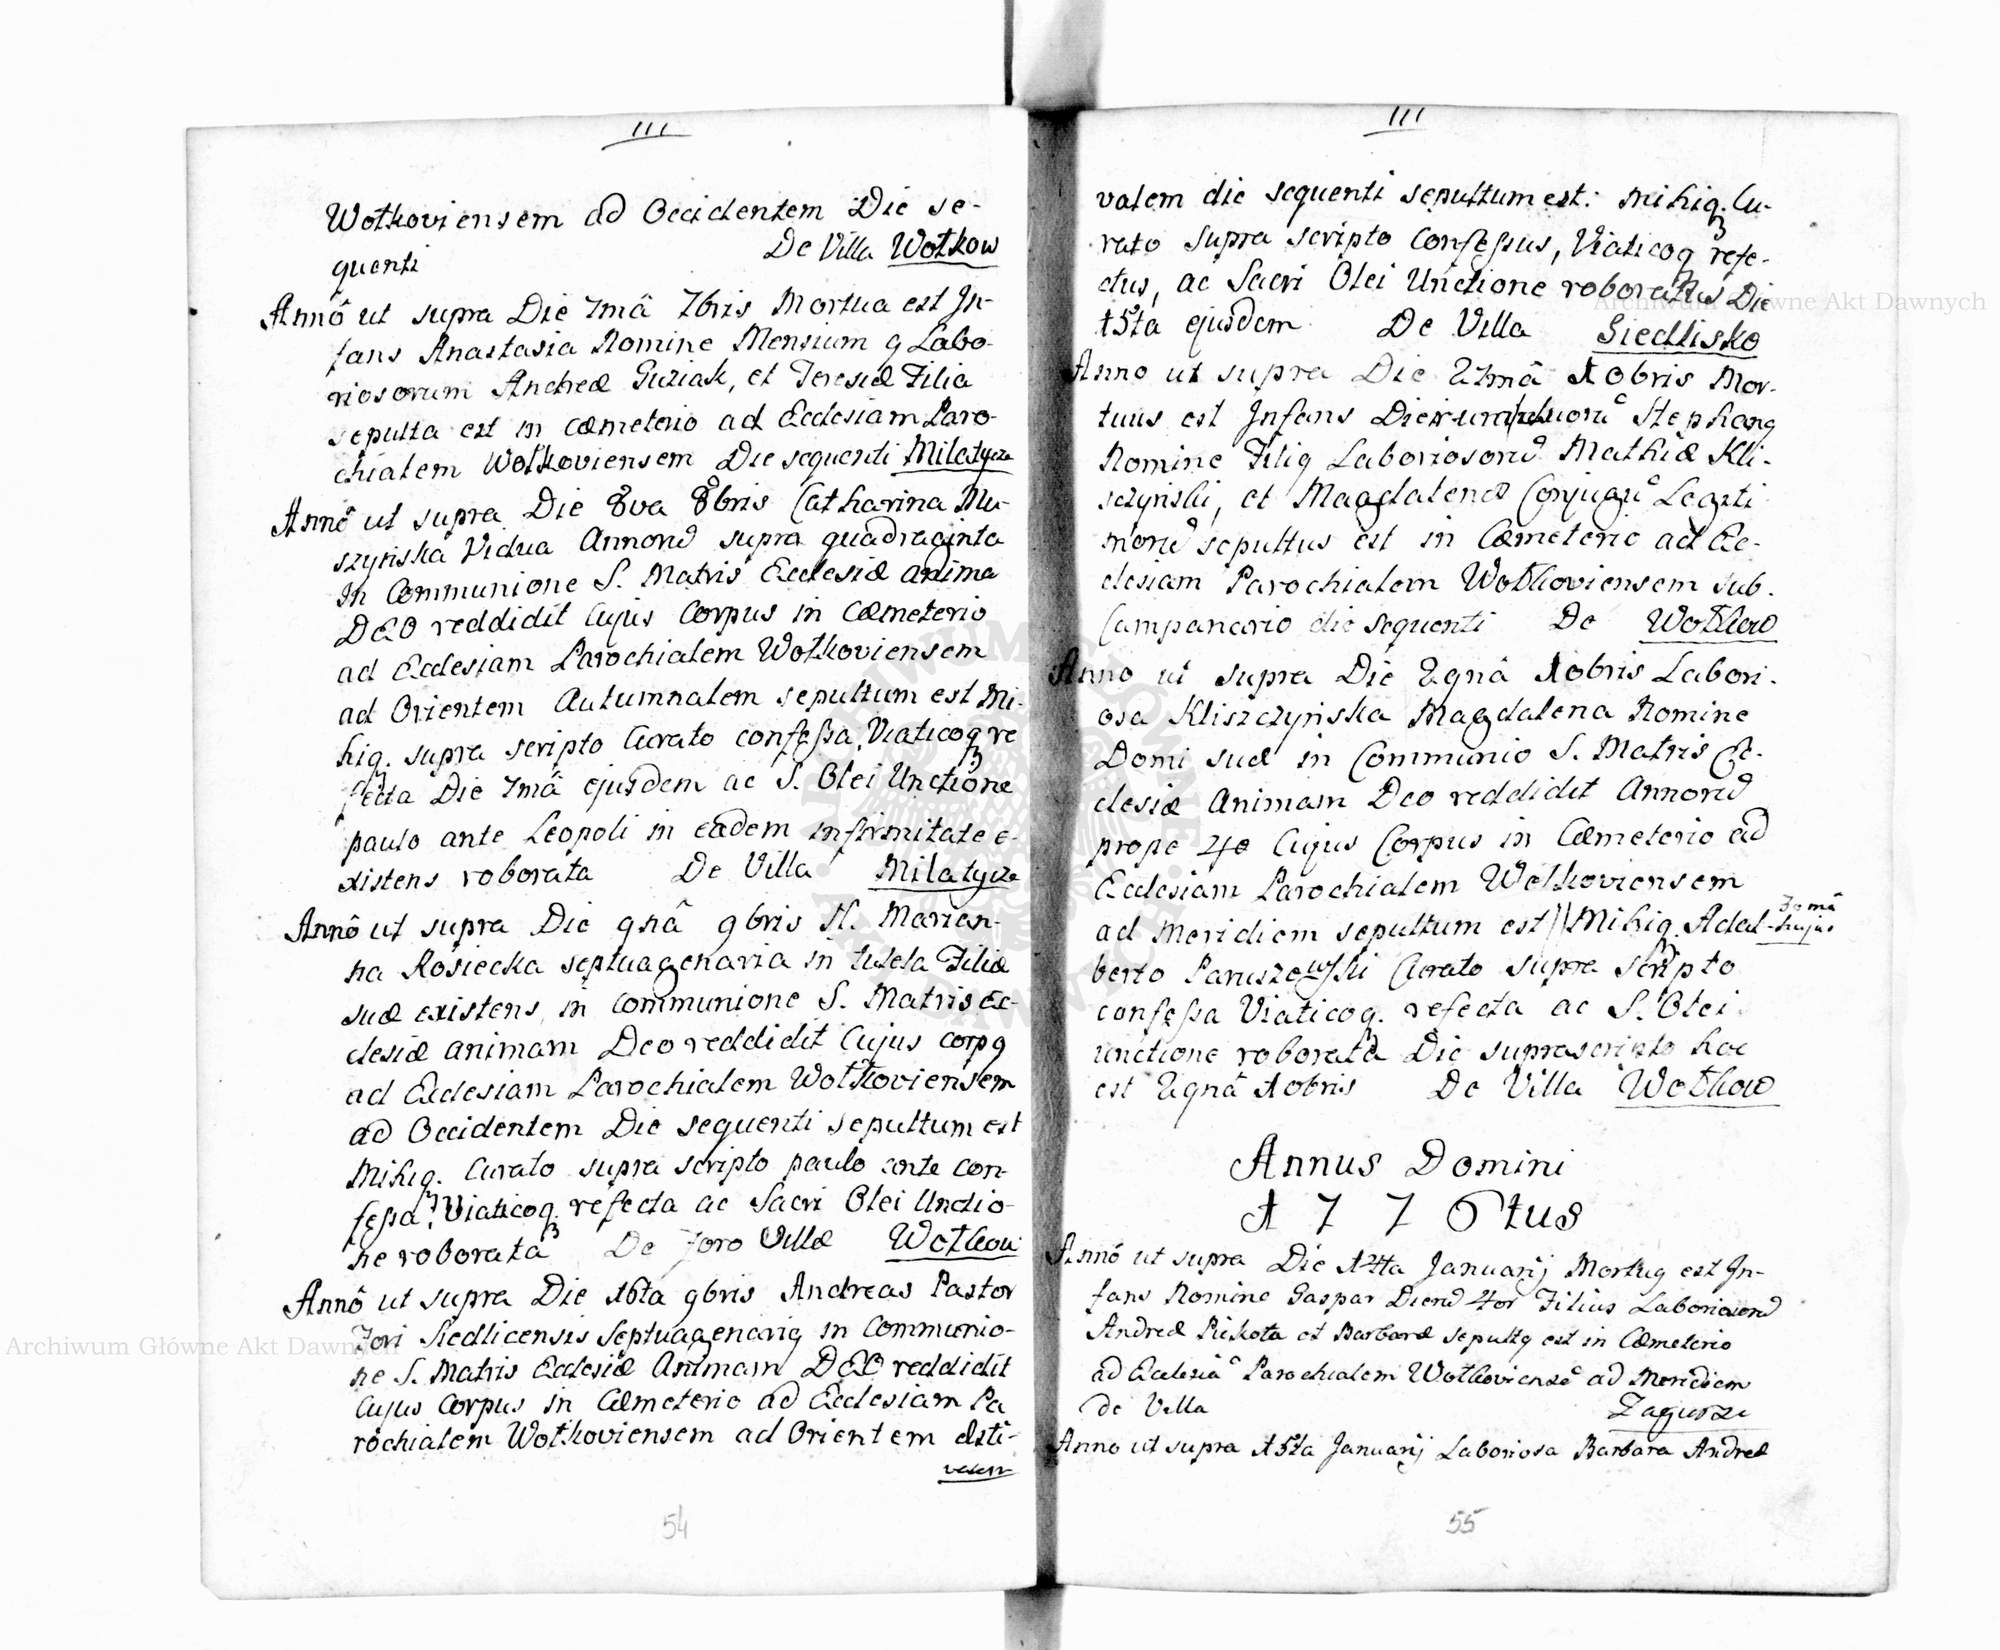 III
Wołkoviensem ad Occidentem Die se-
quenti De Villa Wołkow
Annô ut supra Die 7mâ 7bris Mortua est In-
fans Anastasia Nomine Mensium 9 Labo-
riosorum Andreæ Guziak, et Teresiæ Filia
sepulta est in cæmeterio ad Ecclesiam Paro-
chialem Wołkoviensem Die sequenti Milatycze
Annô ut supra Die 8va 8bris Catharina Mu-
szyńska Vidua Annorũ supra quadraginta
in Communione S. Matris Ecclesiæ anima
DEO reddidit Cujus Corpus in cæmeterio
ad Ecclesiam Parochialem Wołkoviensem
ad Orientem Autumnalem sepultum est Mi-
hiq. supra scripto Curato confessa, Viaticoq re
fecta Die 7mâ ejusdem ac S. Olei Unctione
paulo ante Leopoli in eadem infirmitate e-
xistens roborata De Villa Milatycze
Annô ut supra Die 9nâ 9bris N. Marian-
na Rosiecka septuagenaria in tutela Filiæ
suæ existens, in communione S. Matris Ec-
clesiæ animam Deo reddidit Cujus corpq
ad Ecclesiam Parochialem Wołkoviensem
ad Occidentem Die sequenti sepultum est
Mihiq. Curato supra scripto paulo ante con-
fessa, Viaticoq refecta ac Sacri Olei Unctio-
ne roborata De foro Villæ Wołkow
Annô ut supra Die 16ta 9bris Andreas Pastor
Fori Siedlicensis Septuagenariq in Communio-
ne S. Matris Ecclesiæ Animam DEO reddidit
Cujus Corpus in Cæmeterio ad Ecclesiam Pa
rochialem Wołkoviensem ad Orientem Æsti-
valem
54
III
valem die sequenti sepultum est: mihiq. Cu-
rato supra scripto confessus, Viaticoq refe-
ctus, ac Sacri Olei Unctione roboratus Die
15ta ejusdem De Villa Siedlisko
Anno ut supra Die 27mâ Xobris Mor-
tuus est Infans Stephanq
Nomine Filiq Laboriosorũ Mathiæ Kli-
szczyński, et Magdalenæ Conjugũ Legiti-
morũ sepultus est in Cæmeterio ad Ec-
clesiam Parochialem Wołkoviensem sub.
Campanario die sequenti De Wołkow
Anno ut supra Die 29nâ Xobris Labori-
osa Kliszczyńska Magdalena Nomine
Domi suæ in Communio S. Matris Ec-
clesiæ Animam Deo reddidit Annorũ
prope 40 Cujus Corpus in Cæmeterio ad
Ecclesiam Parochialem Wołkoviensem
ad Meridiem sepultum est // Mihiq. Adal- 30mâ hujus
berto Paruszewski Curato supra scripto
confessa Viaticoq. refecta ac S. Olei
unctione roborata Die suprascripto hoc
est 29nâ Xobris De Villa Wołkow
Annus Domini
1776tus
Annô ut supra Die 14ta Januarij Mortuq est In-
fans Nomine Gaspar Dierũ 4or Filius Laboriosorũ
Andreæ Piekota et Barbaræ sepultq est in Cæmeterio
ad Ecclesiã Parochialem Wołkoviensẽ ad Meridiem
de Villa Zagurze
Anno ut supra 15ta Januarij Laboriosa Barbara Andreæ
55
Archiwum Główne Akt Dawnych
Archiwum Główne Akt Dawnych